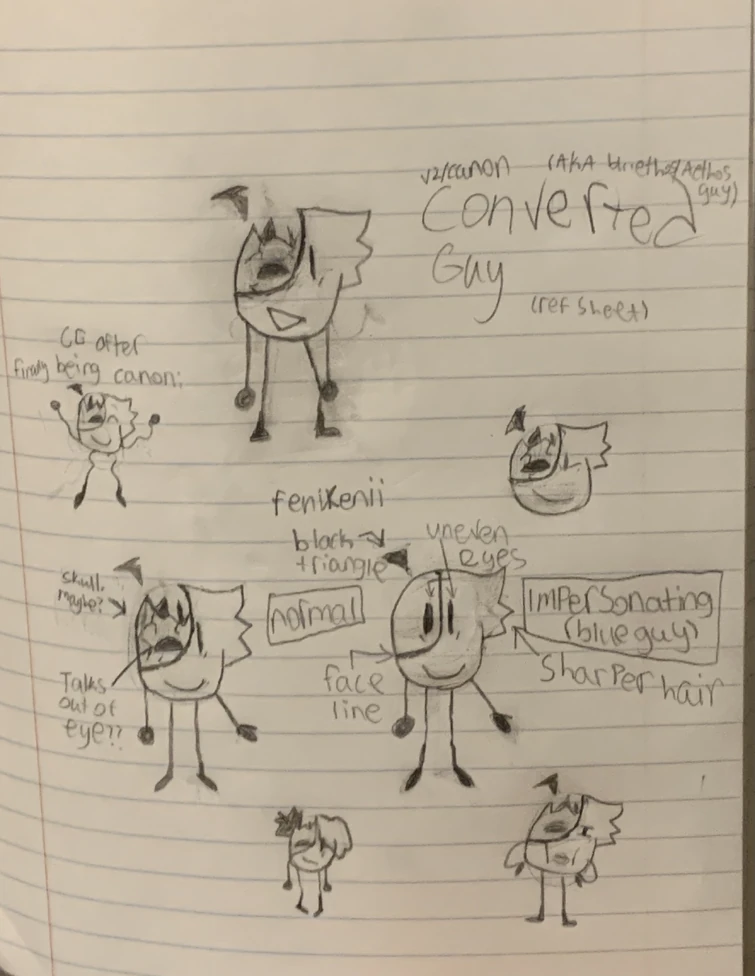 v2/canon (AKA /Aethos
guy)
Converted
Guy
(ref sheet)
CG after
finally being canon:
fenikenii
black
triangle
uneven
eyes
skull,
maybe?
normal
impersonating
(blue guy)
Talks
out of
eye??
face
line
sharper hair